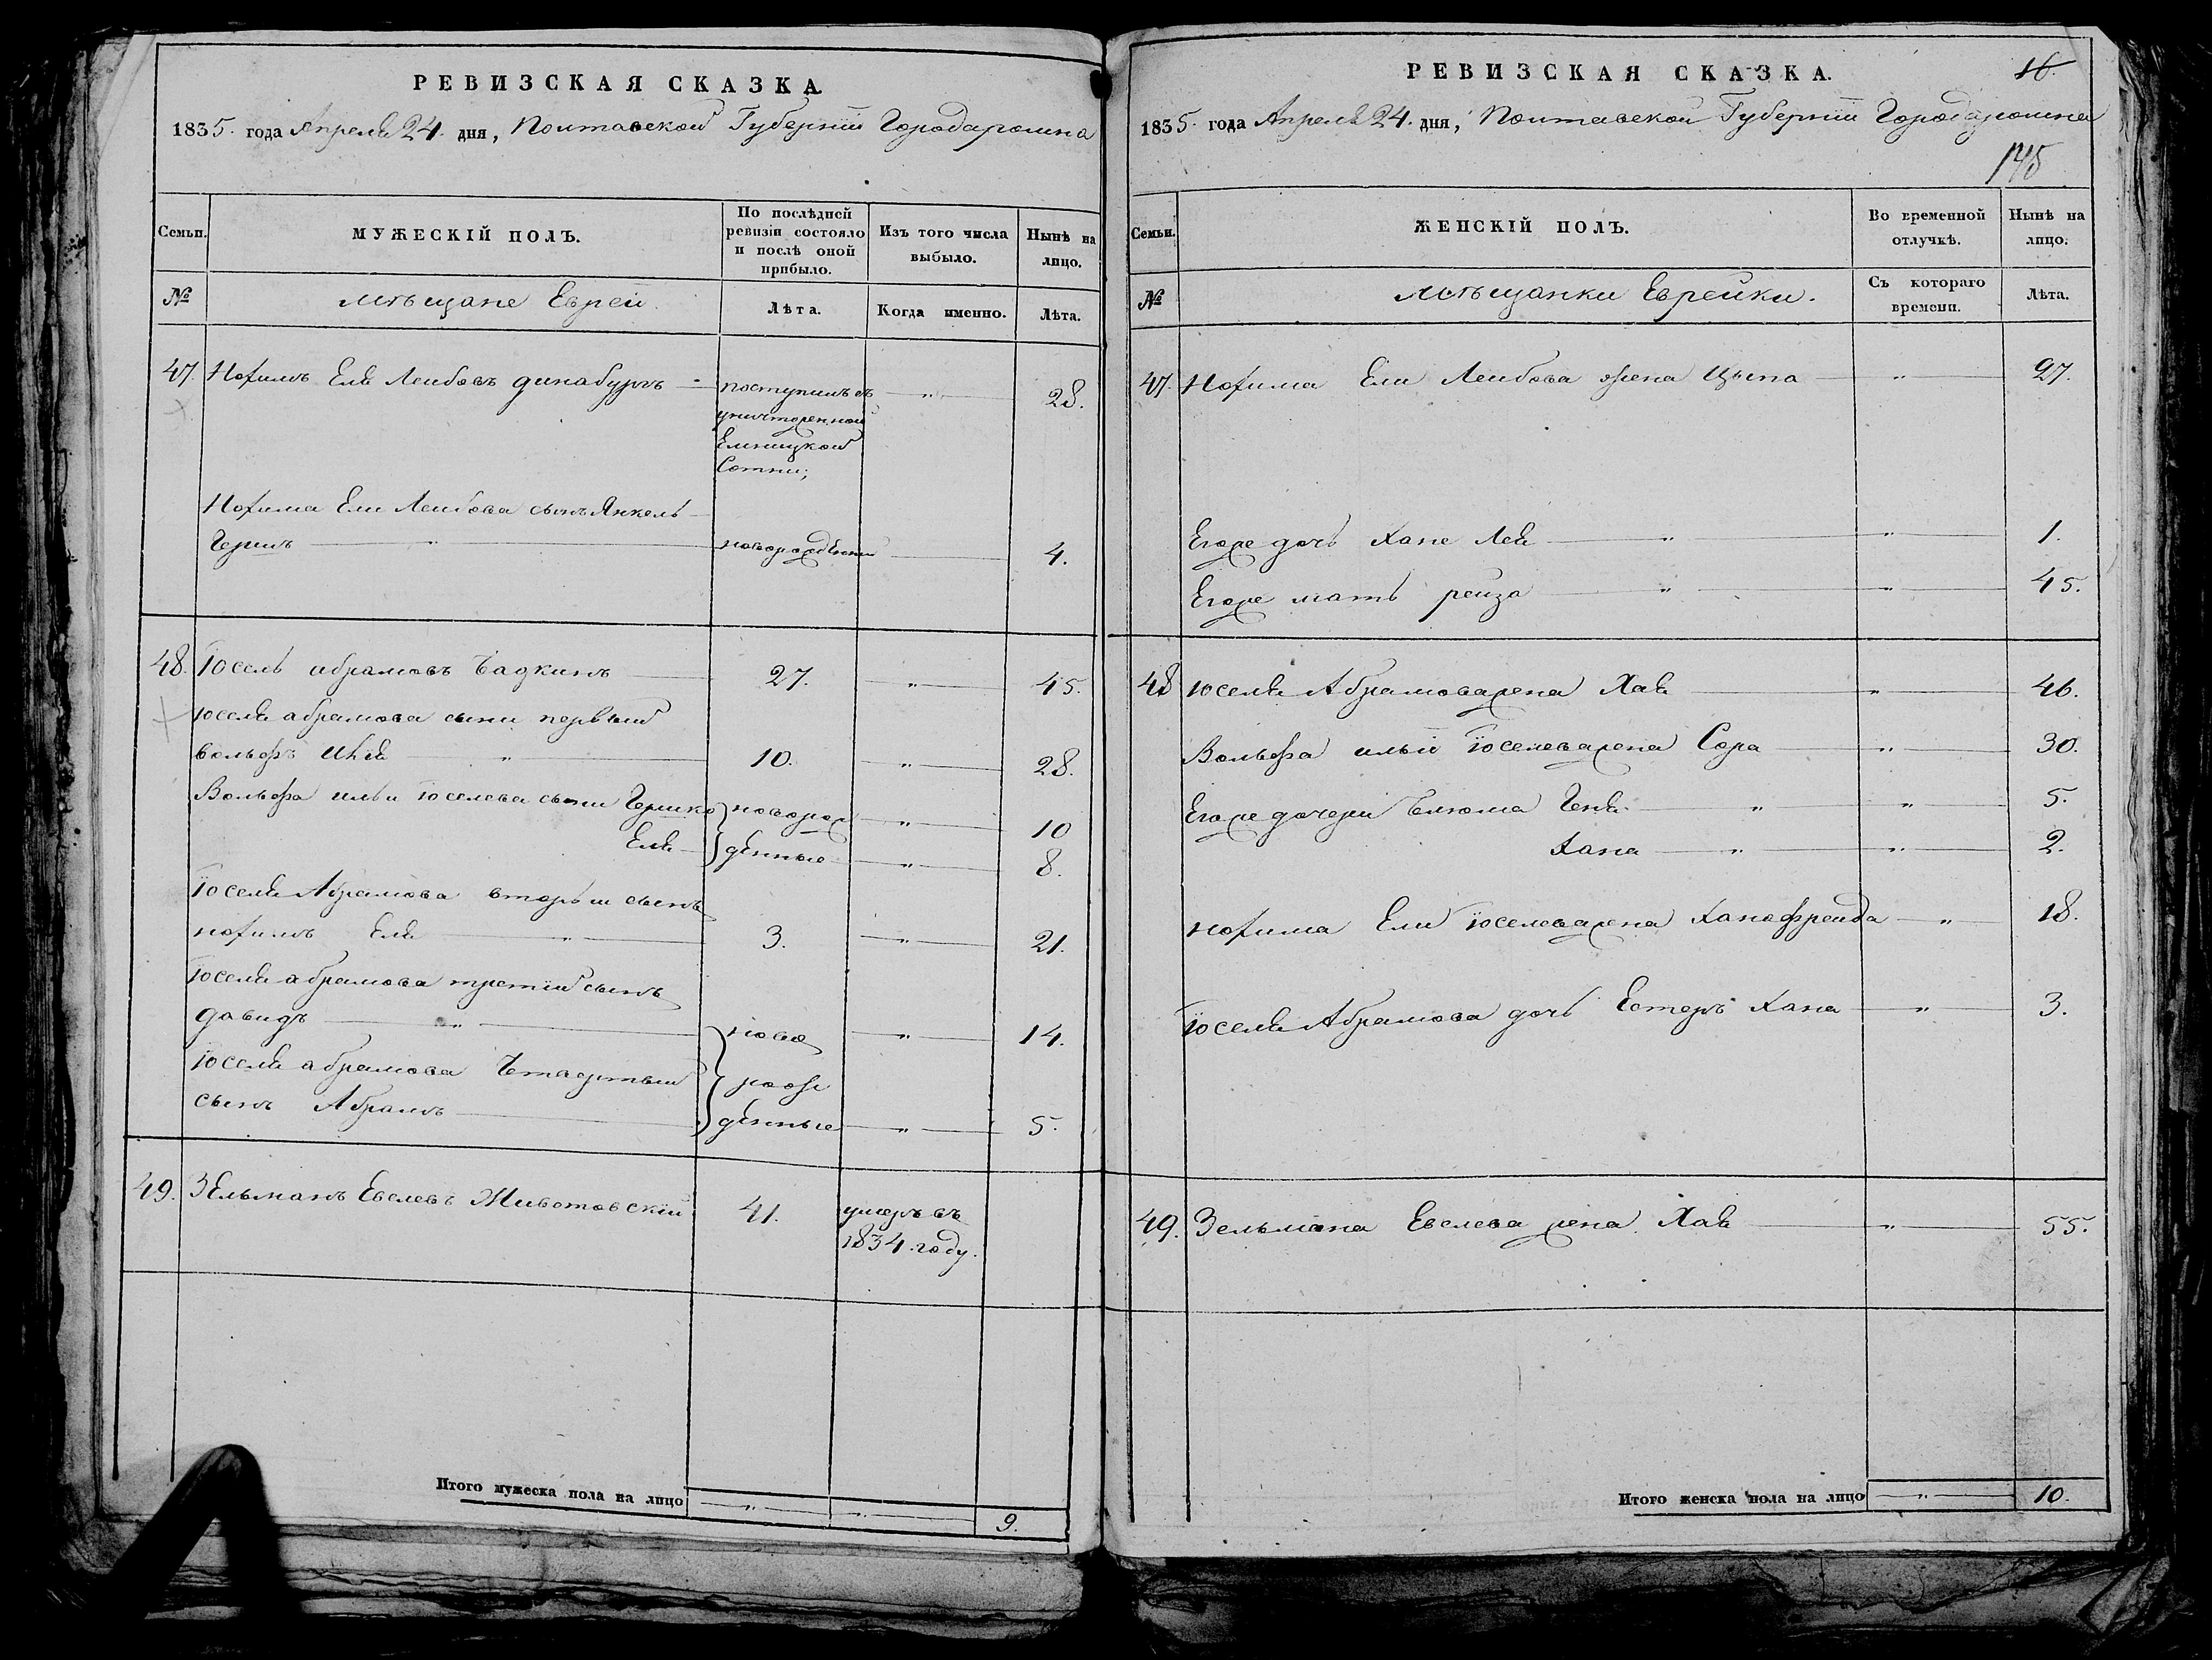 РЕВИЗСКАЯ СКАЗКА.
1835. года Апреля 24. дня, Полтавской Губернии Города Ромна
Семьи.
МУЖЕСКІЙ ПОЛЪ.
По послѣдней ревизіи состояло и послѣ оной прибыло.
Изъ того числа выбыло.
Нынѣ на лицо.
№
Мѣщане Евреи.
Лѣта.
Когда именно.
Лѣта.
47. Нохимъ Еля Леибовъ динабургъ — поступилъ съ — „ — 28.
уничтоженной
Сотни;
Нохима Ели Леибова сынъ Янкель
Гершъ — „ — новорожденный — 4.
48. Іосель абрамовъ — 27. — „ — 45.
Іоселя абрамова сыни первый
вольфъ — „ — 10. — „ — 28.
Вольфа ильи Іоселева сыни Гершко } новорож — „ — 10
Еля — } денные — „ — 8.
Іоселя Абрамова вторый сынъ
нохимъ Еля — „ — 3. — „ — 21.
Іоселя абрамова третій сынъ
давидъ — „ — } ново — „ — 14.
Іоселя абрамова Четвертый } рож
сынъ Абрамъ — } денные — „ — 5.
49. Зельманъ Евелевъ Животовскій 41. умеръ въ
1834. году.
Итого мужеска пола на лицо — „ — „ — 9.
РЕВИЗСКАЯ СКАЗКА.
16.
1835. года Апреля 24. дня, Полтавской Губерніи Города Ромна
145
Семьи.
ЖЕНСКІЙ ПОЛЪ.
Во временной отлучкѣ.
Нынѣ на лицо.
№
Мѣщанки Еврейки.
Съ котораго времени.
Лѣта.
47. Нохима Ели Леибова жена Цыпа — „ — 27.
Егоже дочь Хане Лея — „ — „ — 1.
Егоже мать рейза — „ — „ — 45.
48 Іоселя Абрамова жена Хая — „ — 46.
Вольфа ильи Іоселева жена Сора — „ — 30.
Егоже дочери Блюма Геня — „ — „ — 5.
Хана — „ — „ — 2.
нохима Ели Іоселева жена Ханафрейда — „ — 18.
Іоселя Абрамова дочь Естеръ Хана — „ — 3.
49. Зельмана Евелева жена Хая — „ — 55.
Итого женска пола на лицо — „ — 10.